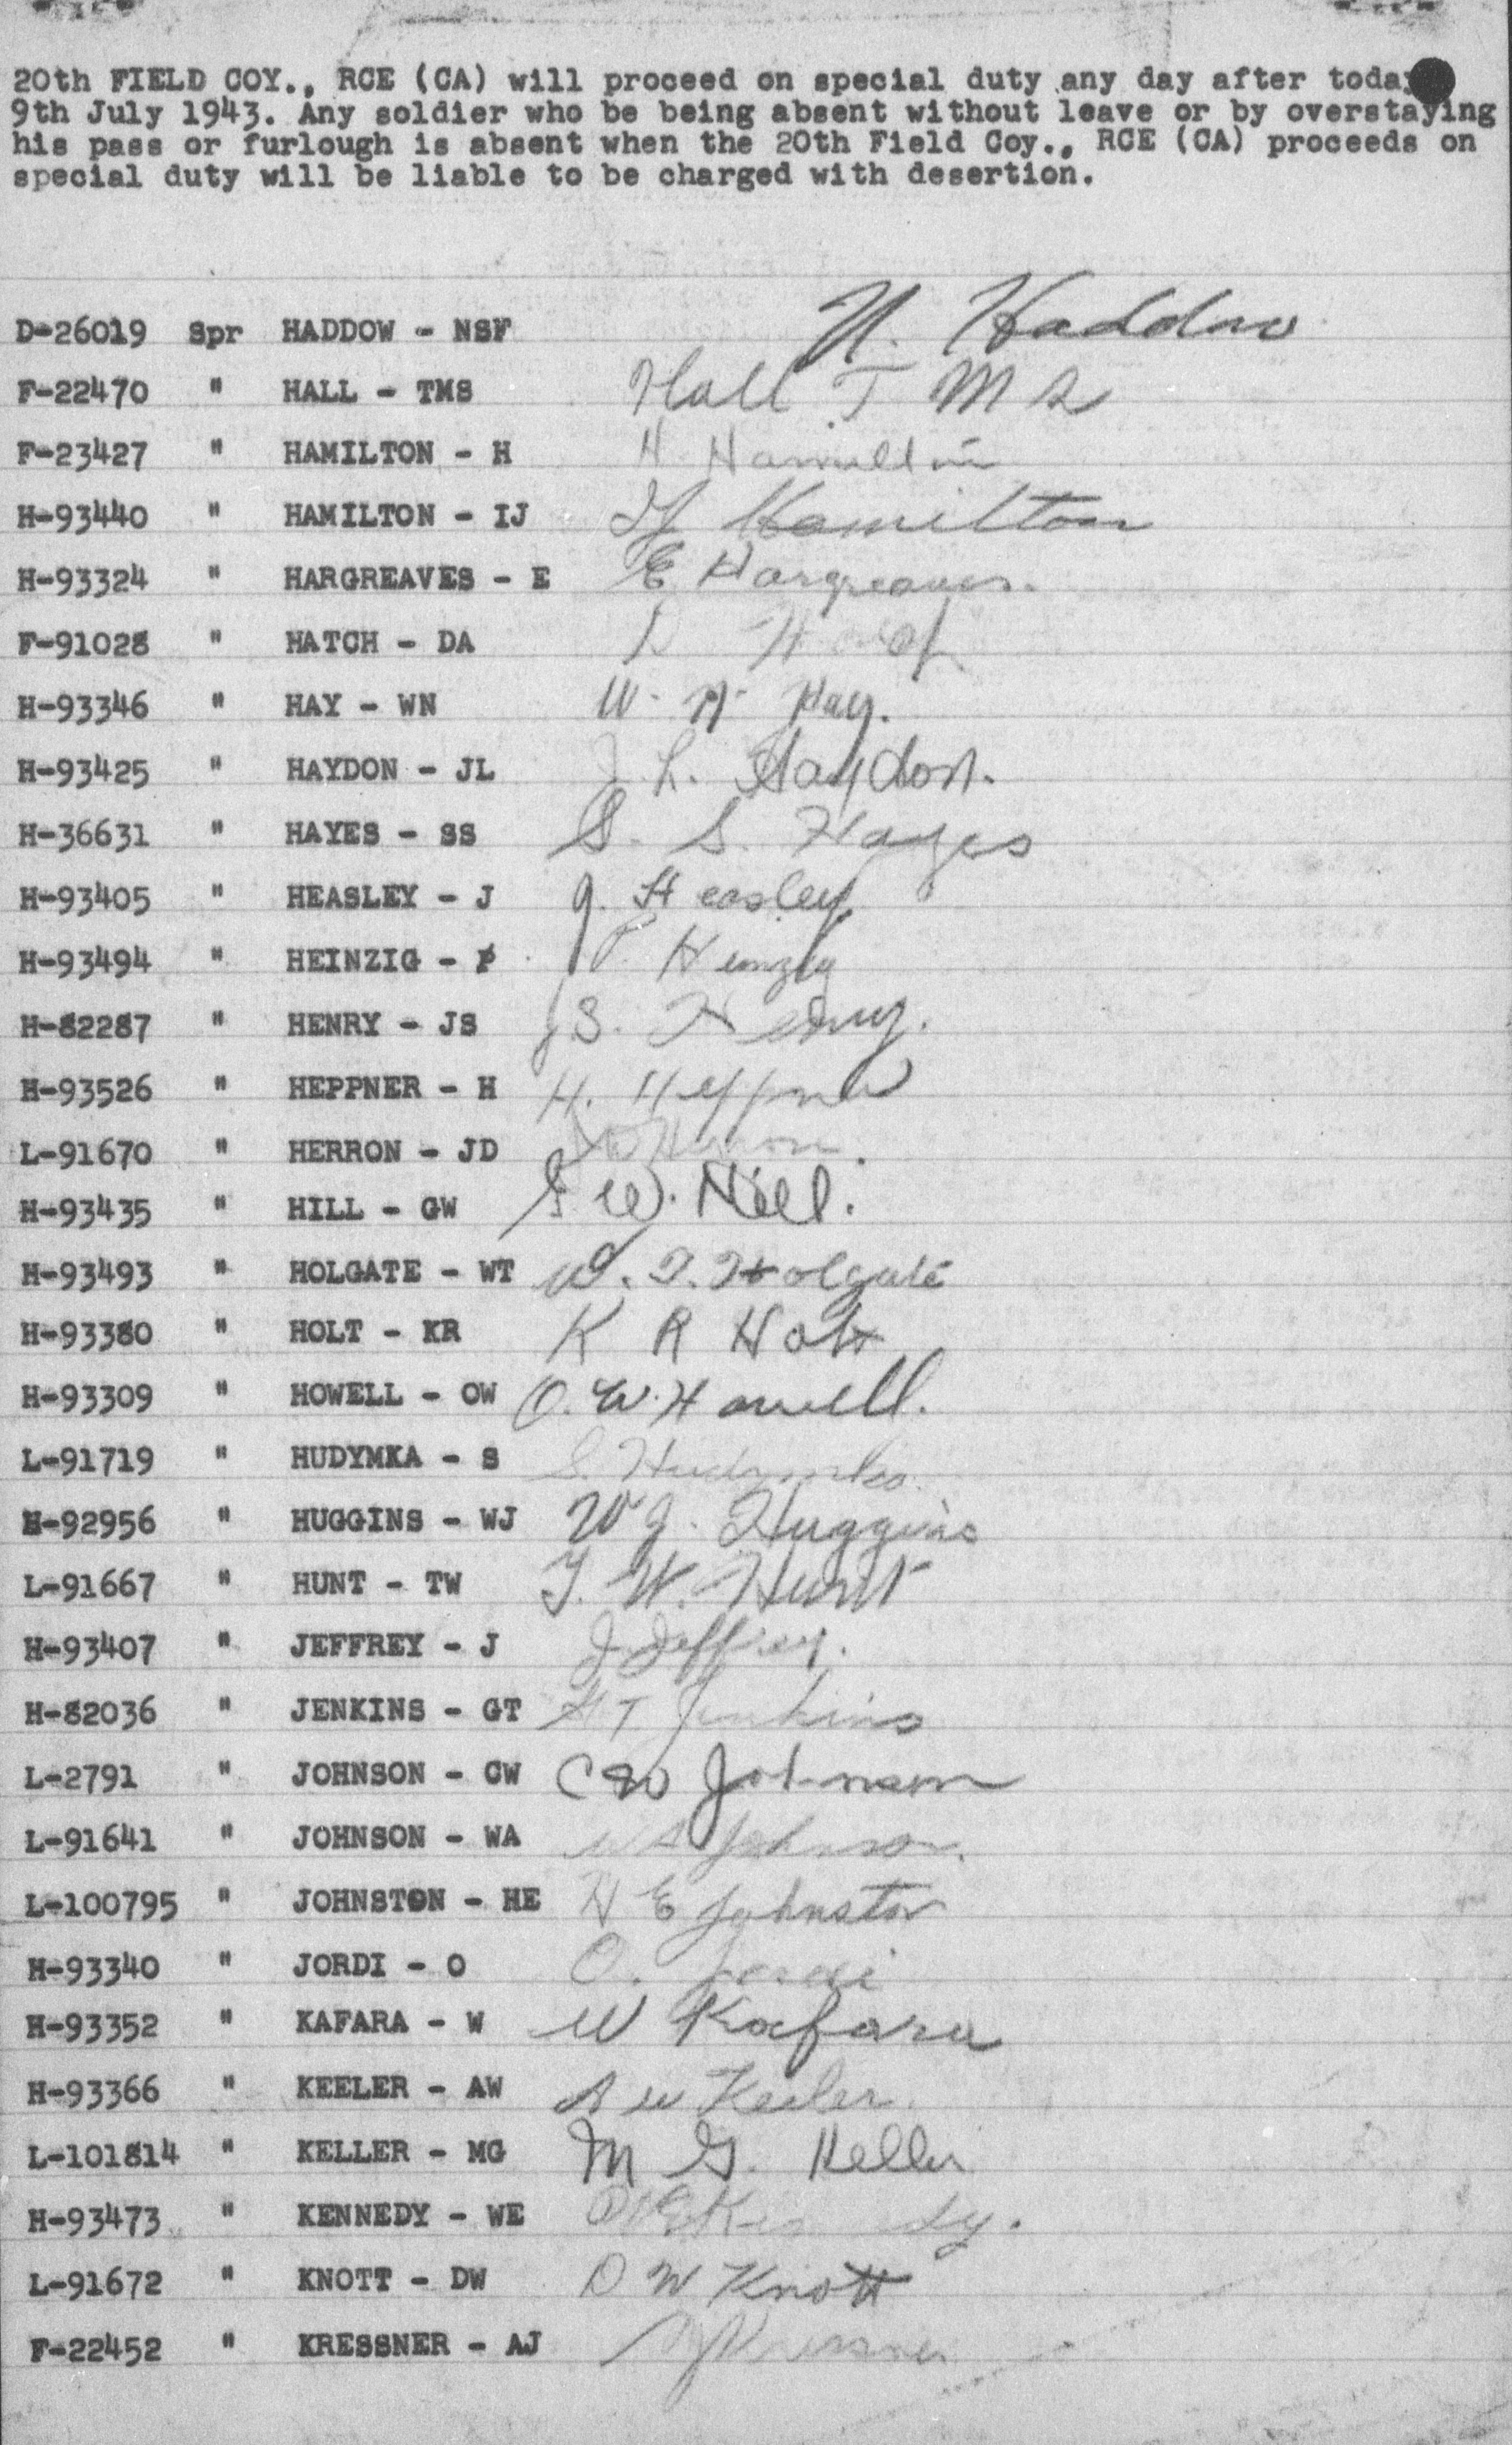 20th FIELD COY., RCE (CA) will proceed on special duty any day after today
9th July 1943. Any soldier who be being absent without leave or by overstaying
his pass or furlough is absent when the 20th Field Coy., RCE (CA) proceeds on
special duty will be liable to be charged with desertion.
D-26019 Spr HADDOW - NSF N. Haddow
F-22470 " HALL - TMS Hall T M S
F-23427 " HAMILTON - H H. Hamilton
H-93440 " HAMILTON - IJ IJ Hamilton
H-93324 " HARGREAVES - E E Hargreaves.
F-91028 " HATCH - DA D
H-93346 " HAY - WN W. N. Hay.
H-93425 " HAYDON - JL J. L. Haydon.
H-36631 " HAYES - SS S. S. Hayes
H-93405 " HEASLEY - J J. Heasley
H-93494 " HEINZIG - P P. Heinzig
H-82287 " HENRY - JS JS. Henry.
H-93526 " HEPPNER - H H. Heppner
L-91670 " HERRON - JD JD Herron.
H-93435 " HILL - GW G. W. Hill.
H-93493 " HOLGATE - WT W. T. Holgate
H-93380 " HOLT - KR K R Holt
H-93309 " HOWELL - OW O. W. Howell.
L-91719 " HUDYMKA - S S. Hudymka.
H-92956 " HUGGINS - WJ W J. Huggins
L-91667 " HUNT - TW T. W. Hunt
H-93407 " JEFFREY - J J. Jeffrey.
H-82036 " JENKINS - GT GT Jenkins
L-2791 " JOHNSON - CW CW Johnson
L-91641 " JOHNSON - WA WA Johnson.
L-100795 " JOHNSTON - HE H E Johnston
H-93340 " JORDI - O O. Jordi
H-93352 " KAFARA - W W Kafara
H-93366 " KEELER - AW A W Keeler.
L-101814 " KELLER - MG M G. Keller
H-93473 " KENNEDY - WE WE Kennedy.
L-91672 " KNOTT - DW D W Knott
F-22452 " KRESSNER - AJ AJ Kressner